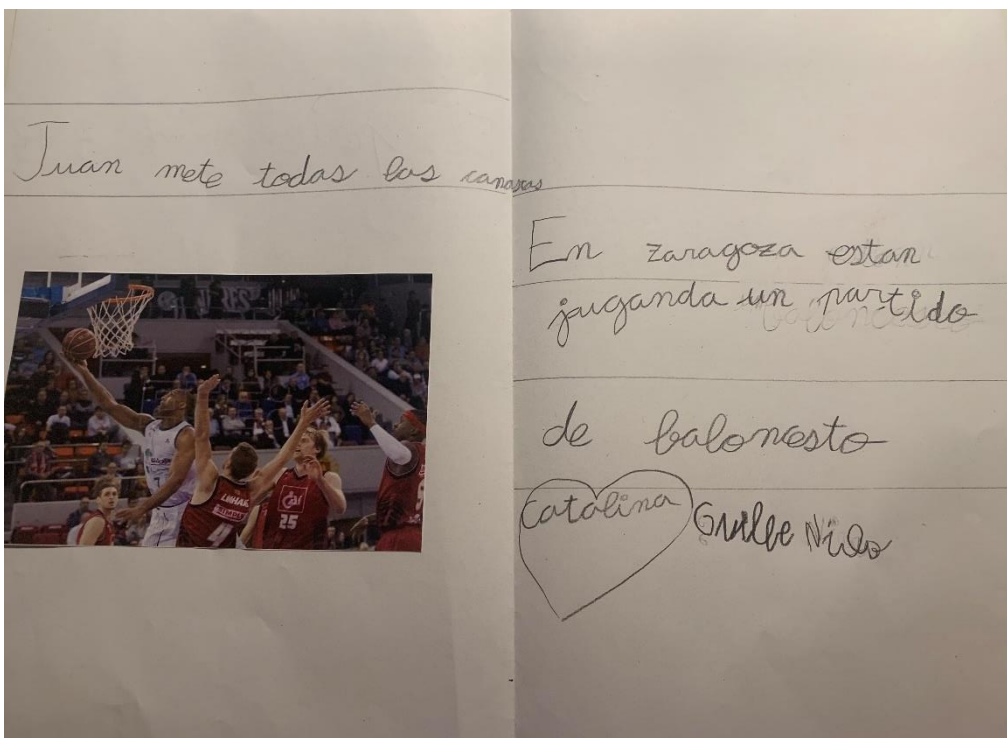 Juan mete todas las canastas
En zaragoza estan
juganda un partido
de baloncesto
Catalina
Guille Nilo
25
4
7